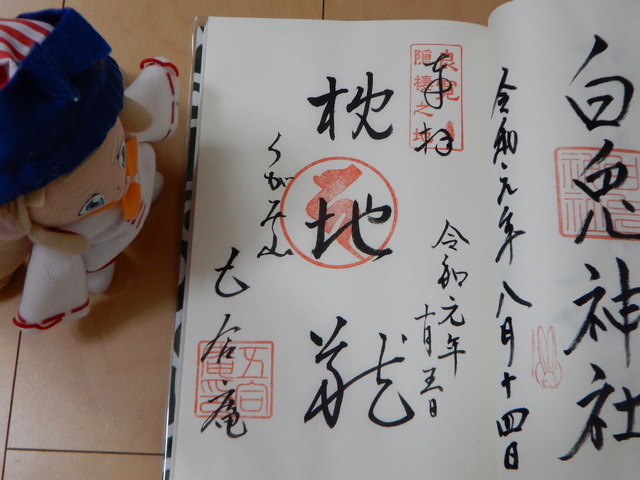 白兎神社
令和元年八月十四日
奉拝
良寛
隠棲之地
令和元年
十月五日
枕地蔵
くがみ山
五合庵
五合